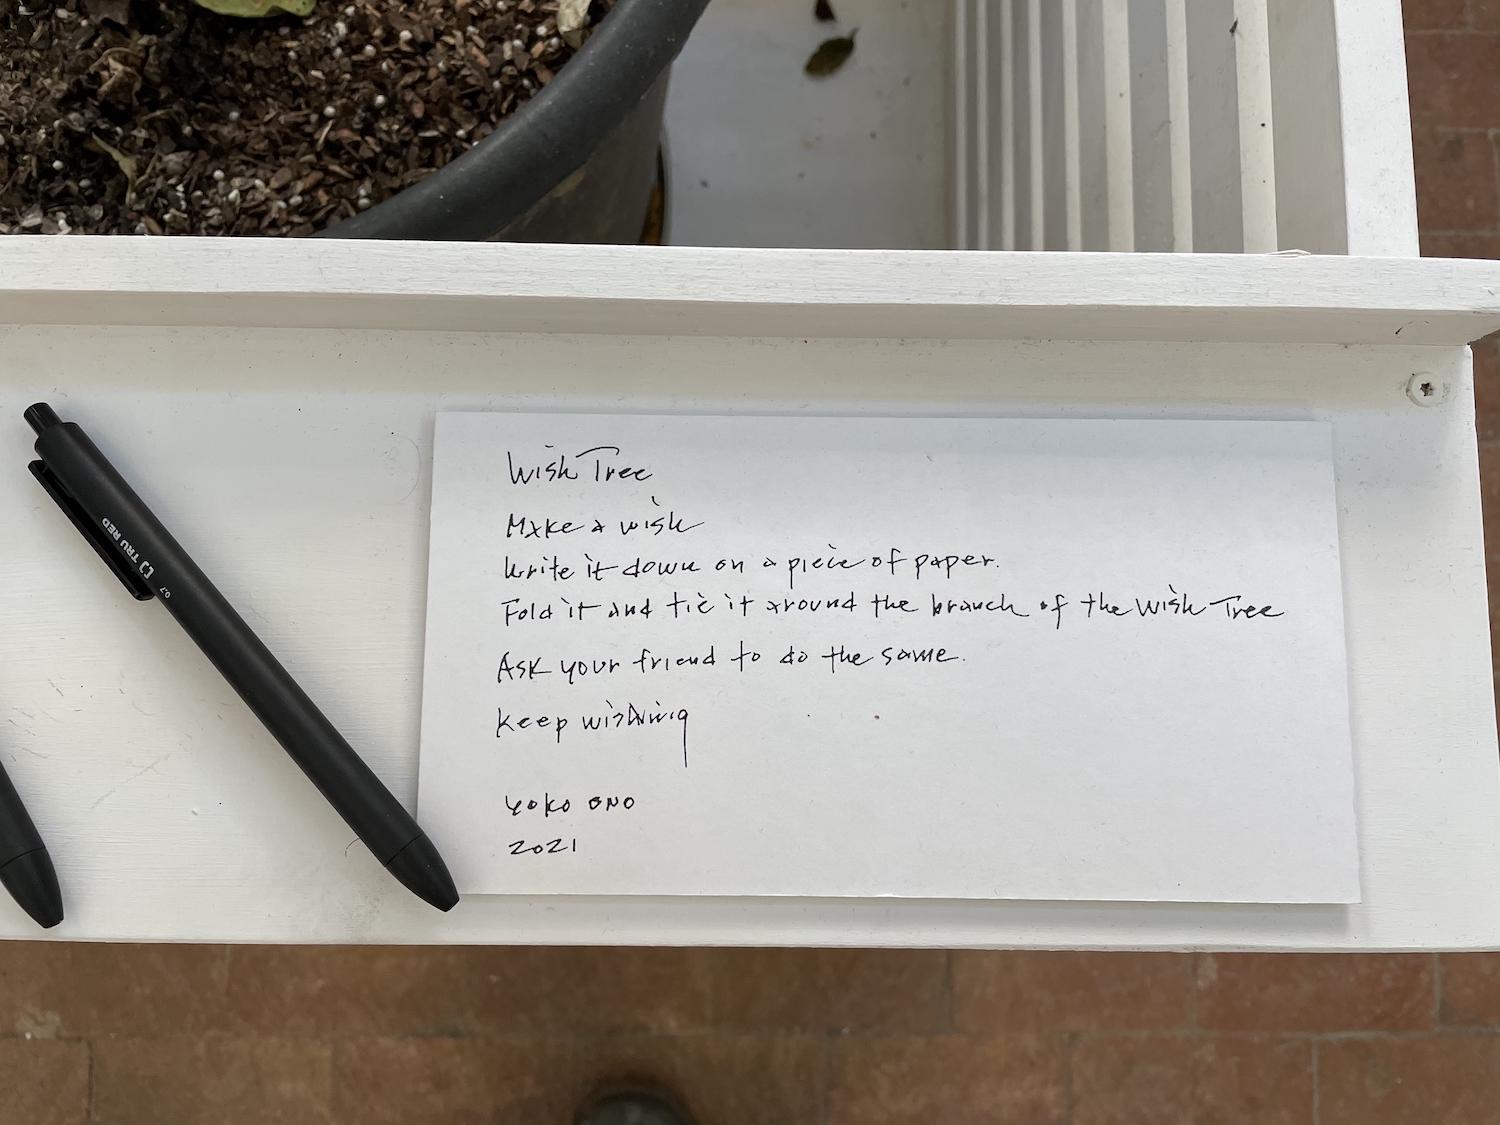 Wish Tree
Make a wish
Write it down on a piece of paper.
Fold it and tie it around the branch of the Wish Tree
Ask your friend to do the same.
Keep wishing
yoko ono
2021
TRU RED
0.7